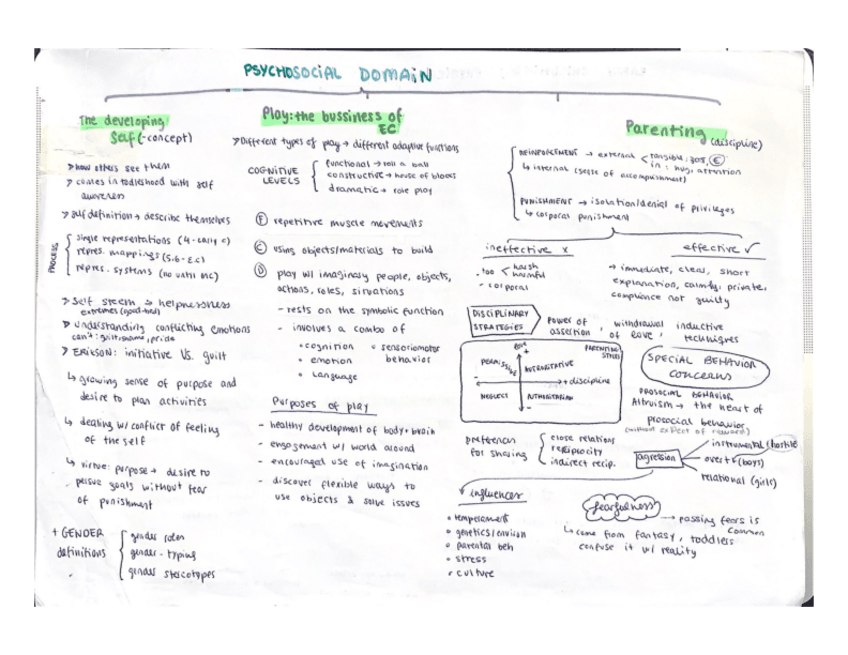 PSYCHOSOCIAL DOMAIN
The developing
Self (-concept)
> how others see them
> comes in todleshood with self
awareness
> self definition → describe themselves
PROCESS
single representations (4-early c)
repres. mappings (5-6-E.C)
repres. systems (no until MC)
> Self steem → helpnessness
extremes (good-bad)
> understanding conflicting emotions
can't: guilt, shame, pride
> ERIKSON: initiative Vs. guilt
↳ growing sense of purpose and
desire to plan activities
↳ dealing w/ conflict of feeling
of the self
↳ virtue: purpose → desire to
persue goals without fear
of punishment
+ GENDER
definitions
gender roles
gender-typing
gender stereotypes
Play: the bussiness of
EC
> Different types of play → different adaptive functions
COGNITIVE
LEVELS
functional → roll a ball
constructive → house of blocks
dramatic → role play
(F) repetitive muscle movements
(C) using objects/materials to build
(D) play w/ imaginary people, objects,
actions, roles, situations
- rests on the symbolic function
- involves a combo of
• cognition • sensoriomotor
• emotion behavior
• language
Purposes of play
- healthy development of body + brain
- engagement w/ world around
- encouraged use of imagination
- discover flexible ways to
use objects & solve issues
Parenting (discipline)
REINFORCEMENT → external < tangible:
in: hug, attention
↳ internal (sense of accomplishment)
PUNISHMENT → isolation/denial of privileges
↳ corporal punishment
ineffective x
• too < harsh
harmful
- corporal
effective ✓
→ immediate, clear, short
explanation, calmly, private,
compliance not guilty
DISCIPLINARY
STRATEGIES
power of
assertion, withdrawal
of love, inductive
techniques
PARENTING
STYLES
love
+
PERMISSIVE
AUTHORITATIVE
- + discipline
NEGLECT
AUTHORITARIAN
-
SPECIAL BEHAVIOR
CONCERNS
PROSOCIAL BEHAVIOR
Altruism → the heart of
prosocial behavior
(without expect of reward)
preferences
for sharing
close relations
reciprocity
indirect recip.
agression
instrumental/hostile
overt → (boys)
relational (girls)
↓ influences
• temperament
• genetics/environ
• parental beh
• stress
• culture
fearfulness
→ passing fears is
common
↳ come from fantasy, toddlers
confuse it w/ reality